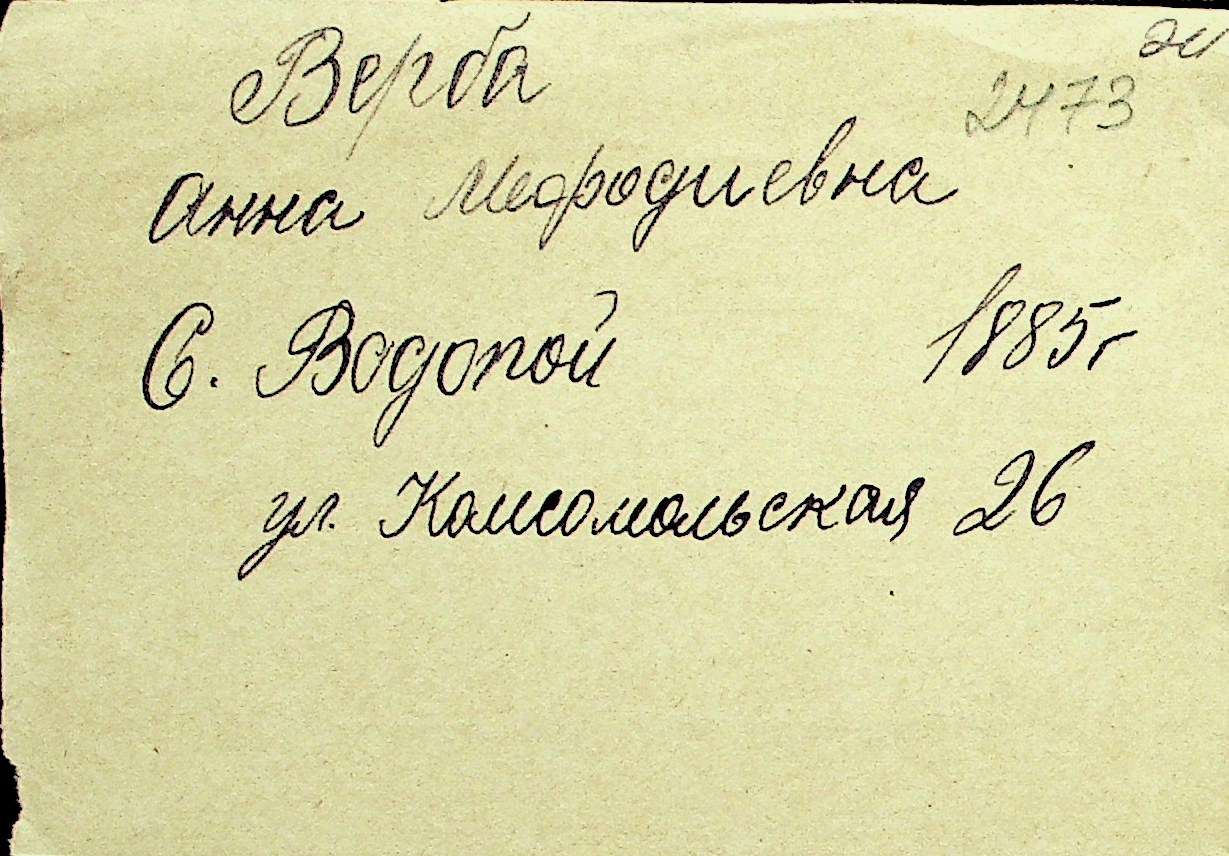 Верба
2473
Анна Мефодиевна
С. Водопой 1885г
ул. Комсомольская 26